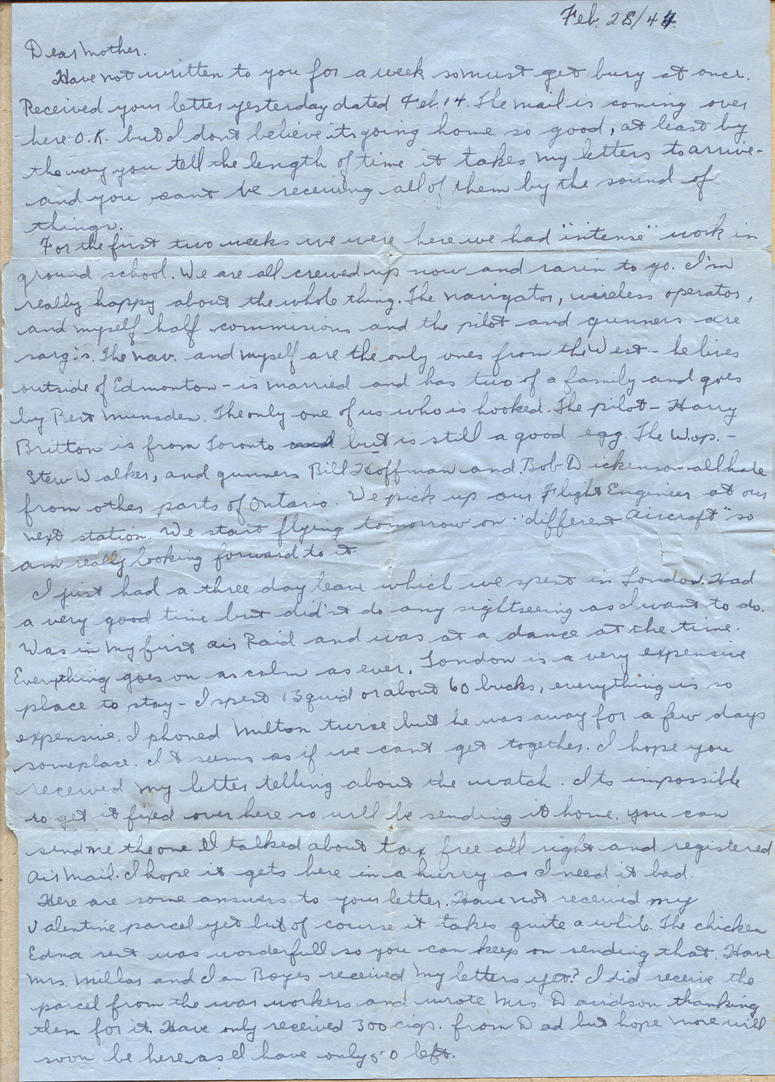 Feb. 28/44.
Dear Mother.
Have not written to you for a week so must get busy at once.
Received your letter yesterday dated Feb 14. The mail is coming over
here O.K. but I don't believe its going home so good, at least by
the way you tell the length of time it takes my letters to arrive-
and you can't be receiving all of them by the sound of
things.
For the first two weeks we were here we had "intense" work in
ground school. We are all crewed up now and rarin to go. I'm
really happy about the whole thing. The navigator, wireless operator,
and myself half commisions and the pilot and gunners are
sargs. The nav. and myself are the only ones from the West - he lives
outside of Edmonton - is married and has two of a family and goes
by Bert Munsden. The only one of us who is hooked. The pilot - Harry
Britton is from Toronto but is still a good egg. The W.op. -
Stew Walker, and gunners Bill Hoffman and Bob Dickenson all hale
from other parts of Ontario. We pick up our Flight Engineer at our
next station. We start flying tomorrow on "different Aircraft" so
am really looking forward to it.
I just had a three day leave which we spent in London. Had
a very good time but didn't do any sightseeing as I want to do.
Was in my first air Raid and was at a dance at the time.
Everything goes on as calm as ever. London is a very expensive
place to stay - I spent 13 quid or about 60 bucks, everything is so
expensive. I phoned Milton twise but he was away for a few days
someplace. It seems as if we can't get together. I hope you
received my letter telling about the watch. Its impossible
to get it fixed over here so will be sending it home. you can
send me the one I talked about tax free all right and registered
Air Mail. I hope it gets here in a hurry as I need it bad.
Here are some answers to your letter. Have not received my
Valentine parcel yet but of course it takes quite a while. The chicken
Edna sent was wonderfull so you can keep on sending that. Have
Mrs. Millar and Ian Boyes received my letters yet? I did receive the
parcel from the war workers and wrote Mrs. Davidson thanking
them for it. Have only received 300 cigs. from Dad but hope more will
soon be here as I have only 50 left.